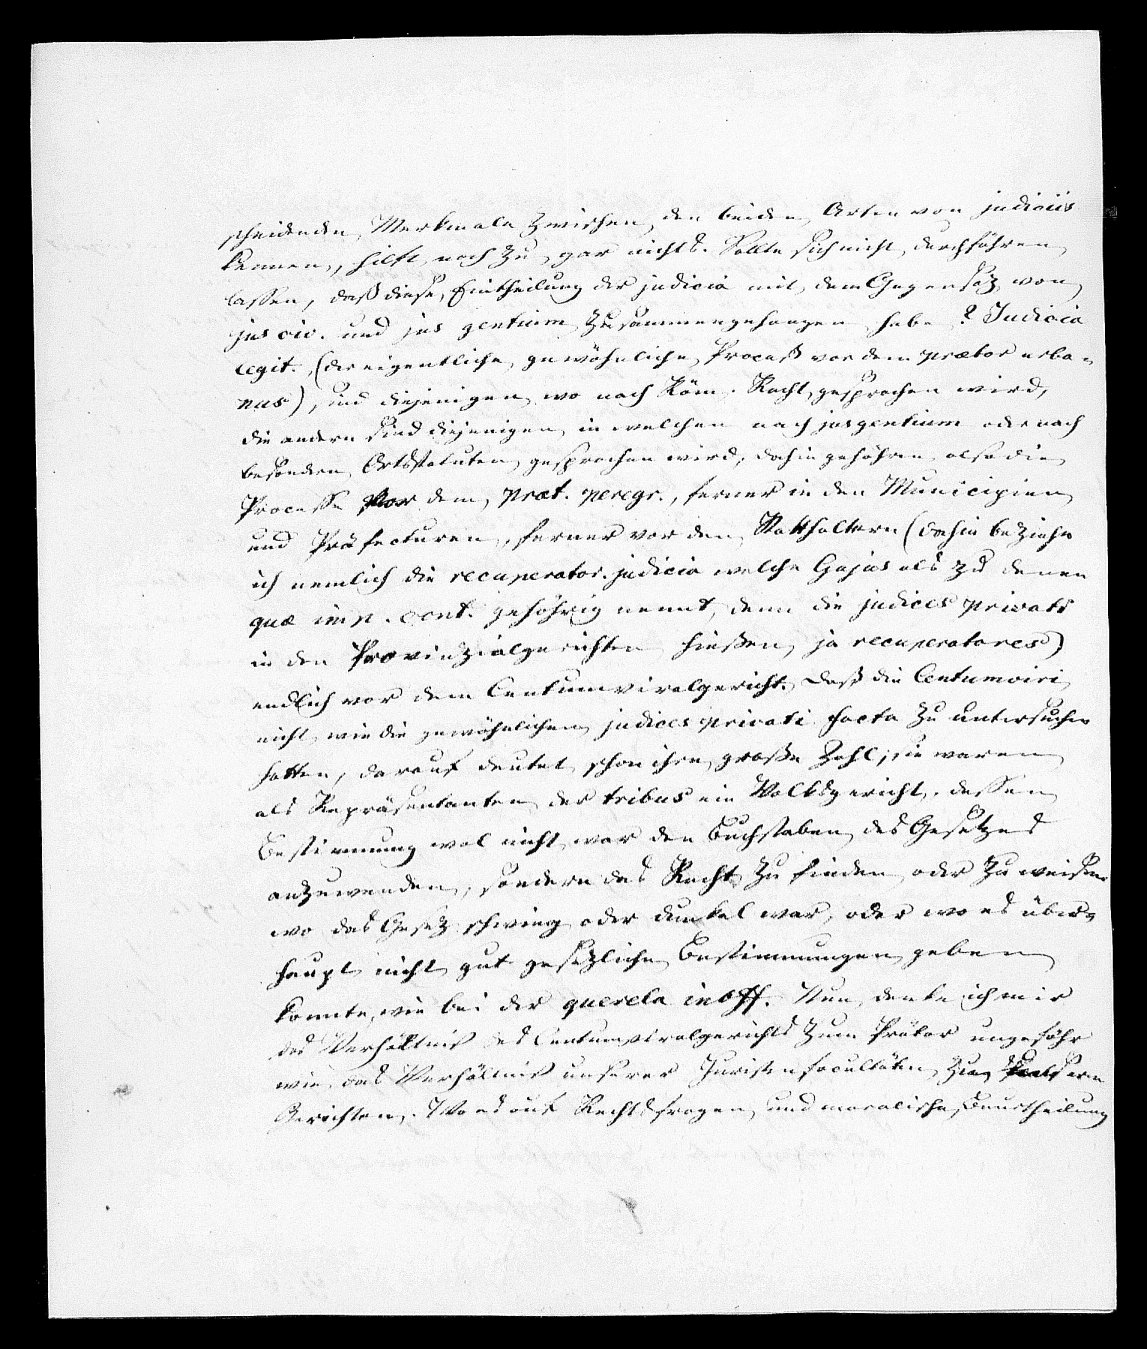 scheidenden Merkmale zwischen den beiden Arten von judiciis
kennen, hilft noch zu gar nichts. Sollte sich nicht durchführen
lassen, daß diese Eintheilung der judicia mit dem Gegensatz von
jus civ. und jus gentium zusammengehangen habe? Judicia
legit. (der eigentliche, gewöhnliche Proceß vor dem prætor urba-
nus), sind diejenigen wo nach Röm. Recht gesprochen wird,
die andern sind diejenigen in welchen nach jus gentium oder nach
besondern Ortsstatuten gesprochen wird, dahin gehören also die
Processe vor dem præt. peregr., ferner in den Municipien
und Präfecturen, ferner vor den Statthaltern (dahin beziehe
ich nemlich die recuperator. judicia welche Gajus als zu denen
quæ imp. cont. gehörig nennt, denn die judices privati
in den Provinzialgerichten hießen ja recuperatores)
endlich vor dem Centumviralgericht. Daß die Centumviri
nicht wie die gewöhnlichen judices privati facta zu untersuchen
hatten, darauf deutet schon ihre große Zahl; sie waren
als Repräsentanten der tribus ein Volksgericht, dessen
Bestimmung wol nicht war den Buchstaben des Gesetzes
anzuwenden, sondern das Recht zu finden oder zu weisen
wo das Gesez schwieg oder dunkel war, oder wo es über-
haupt nicht gut gesezliche Bestimmungen geben
konnte, wie bei der querela inoff. Nun denke ich mir
das Verhältniß des Centumviralgerichts zum Prätor ungefähr
wie das Verhältniß unserer Juristenfacultäten zu unsern
Gerichten. Wo es auf Rechtsfragen und moralische Beurtheilung